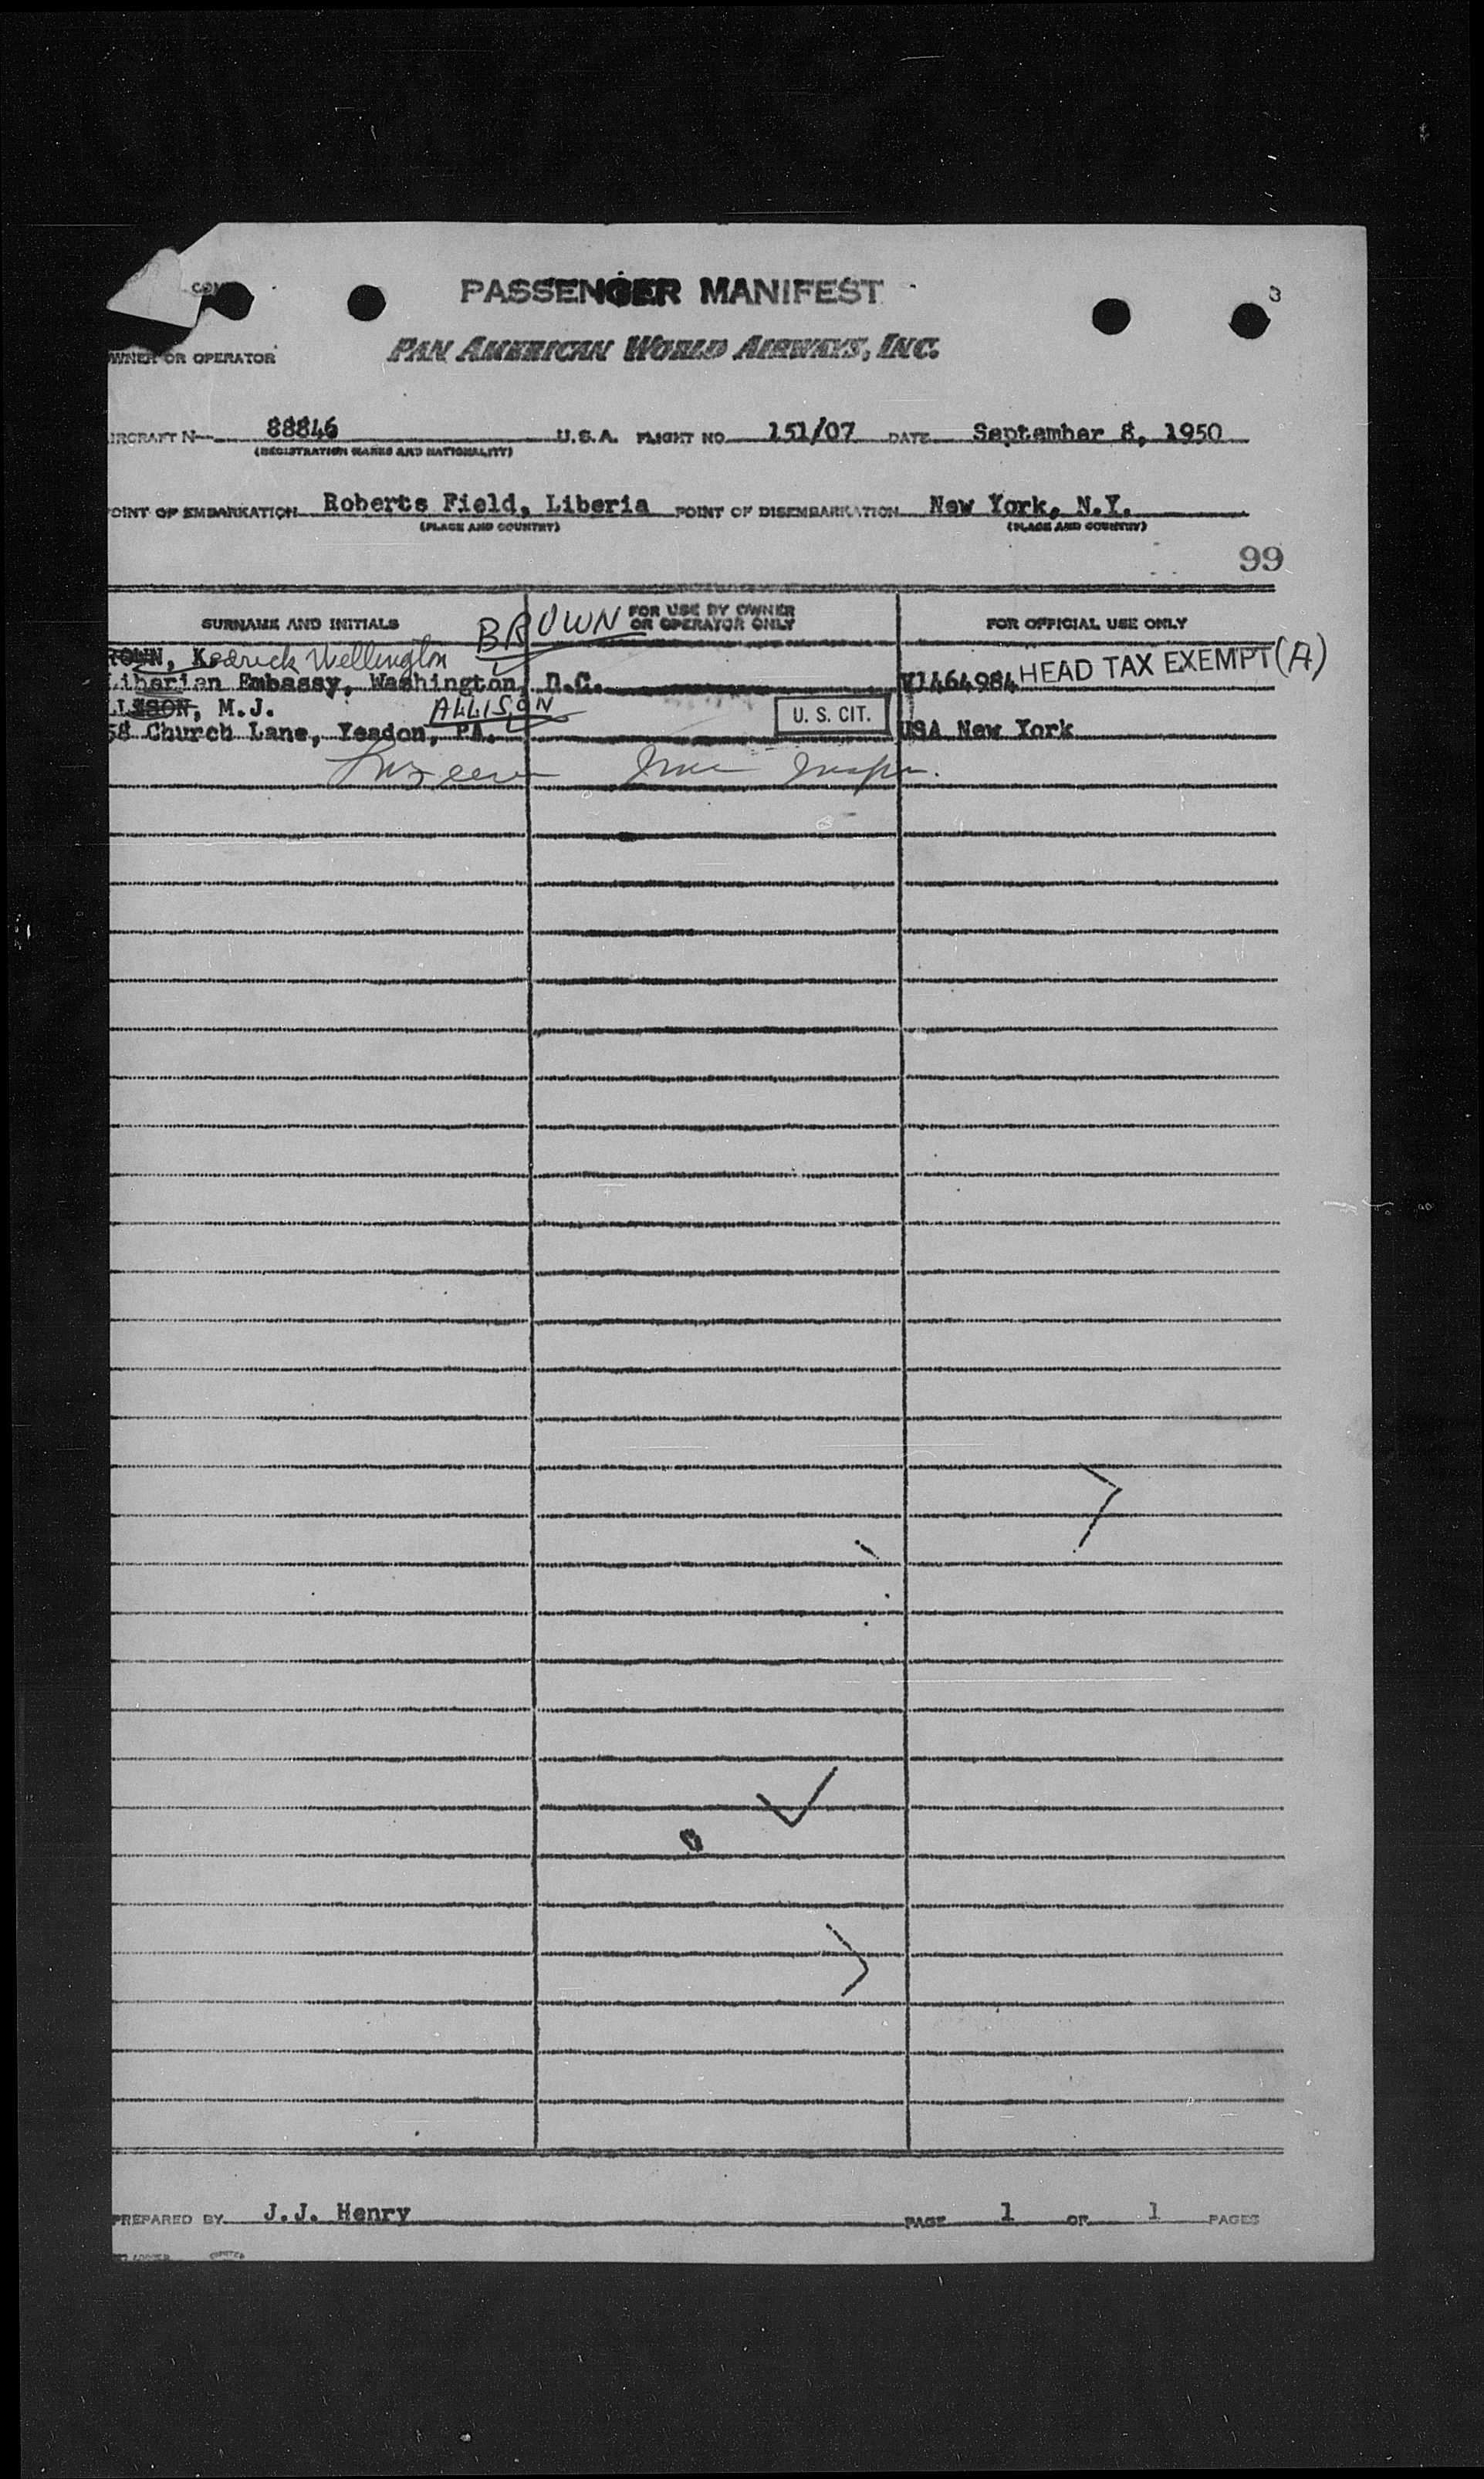 COM
3
PASSENGER MANIFEST
WNER OR OPERATOR PAN AMERICAN WORLD AIRWAYS, INC.
IRCRAFT N 88846 U.S.A. FLIGHT NO 151/07 DATE September 8, 1950
(REGISTRATION MARKS AND NATIONALITY)
OINT OF EMBARKATION Roberts Field, Liberia POINT OF DISEMBARKATION New York, N.Y.
(PLACE AND COUNTRY) (PLACE AND COUNTRY)
99
SURNAME AND INITIALS BROWN FOR USE BY OWNER OR OPERATOR ONLY FOR OFFICIAL USE ONLY
ROWN, Kedrick Wellington
Liberian Embassy, Washington, D.C. V1464984 HEAD TAX EXEMPT (A)
LLISON, M.J. ALLISON
58 Church Lane, Yeadon, PA. U. S. CIT. USA New York
PREPARED BY J.J. Henry PAGE 1 OF 1 PAGES